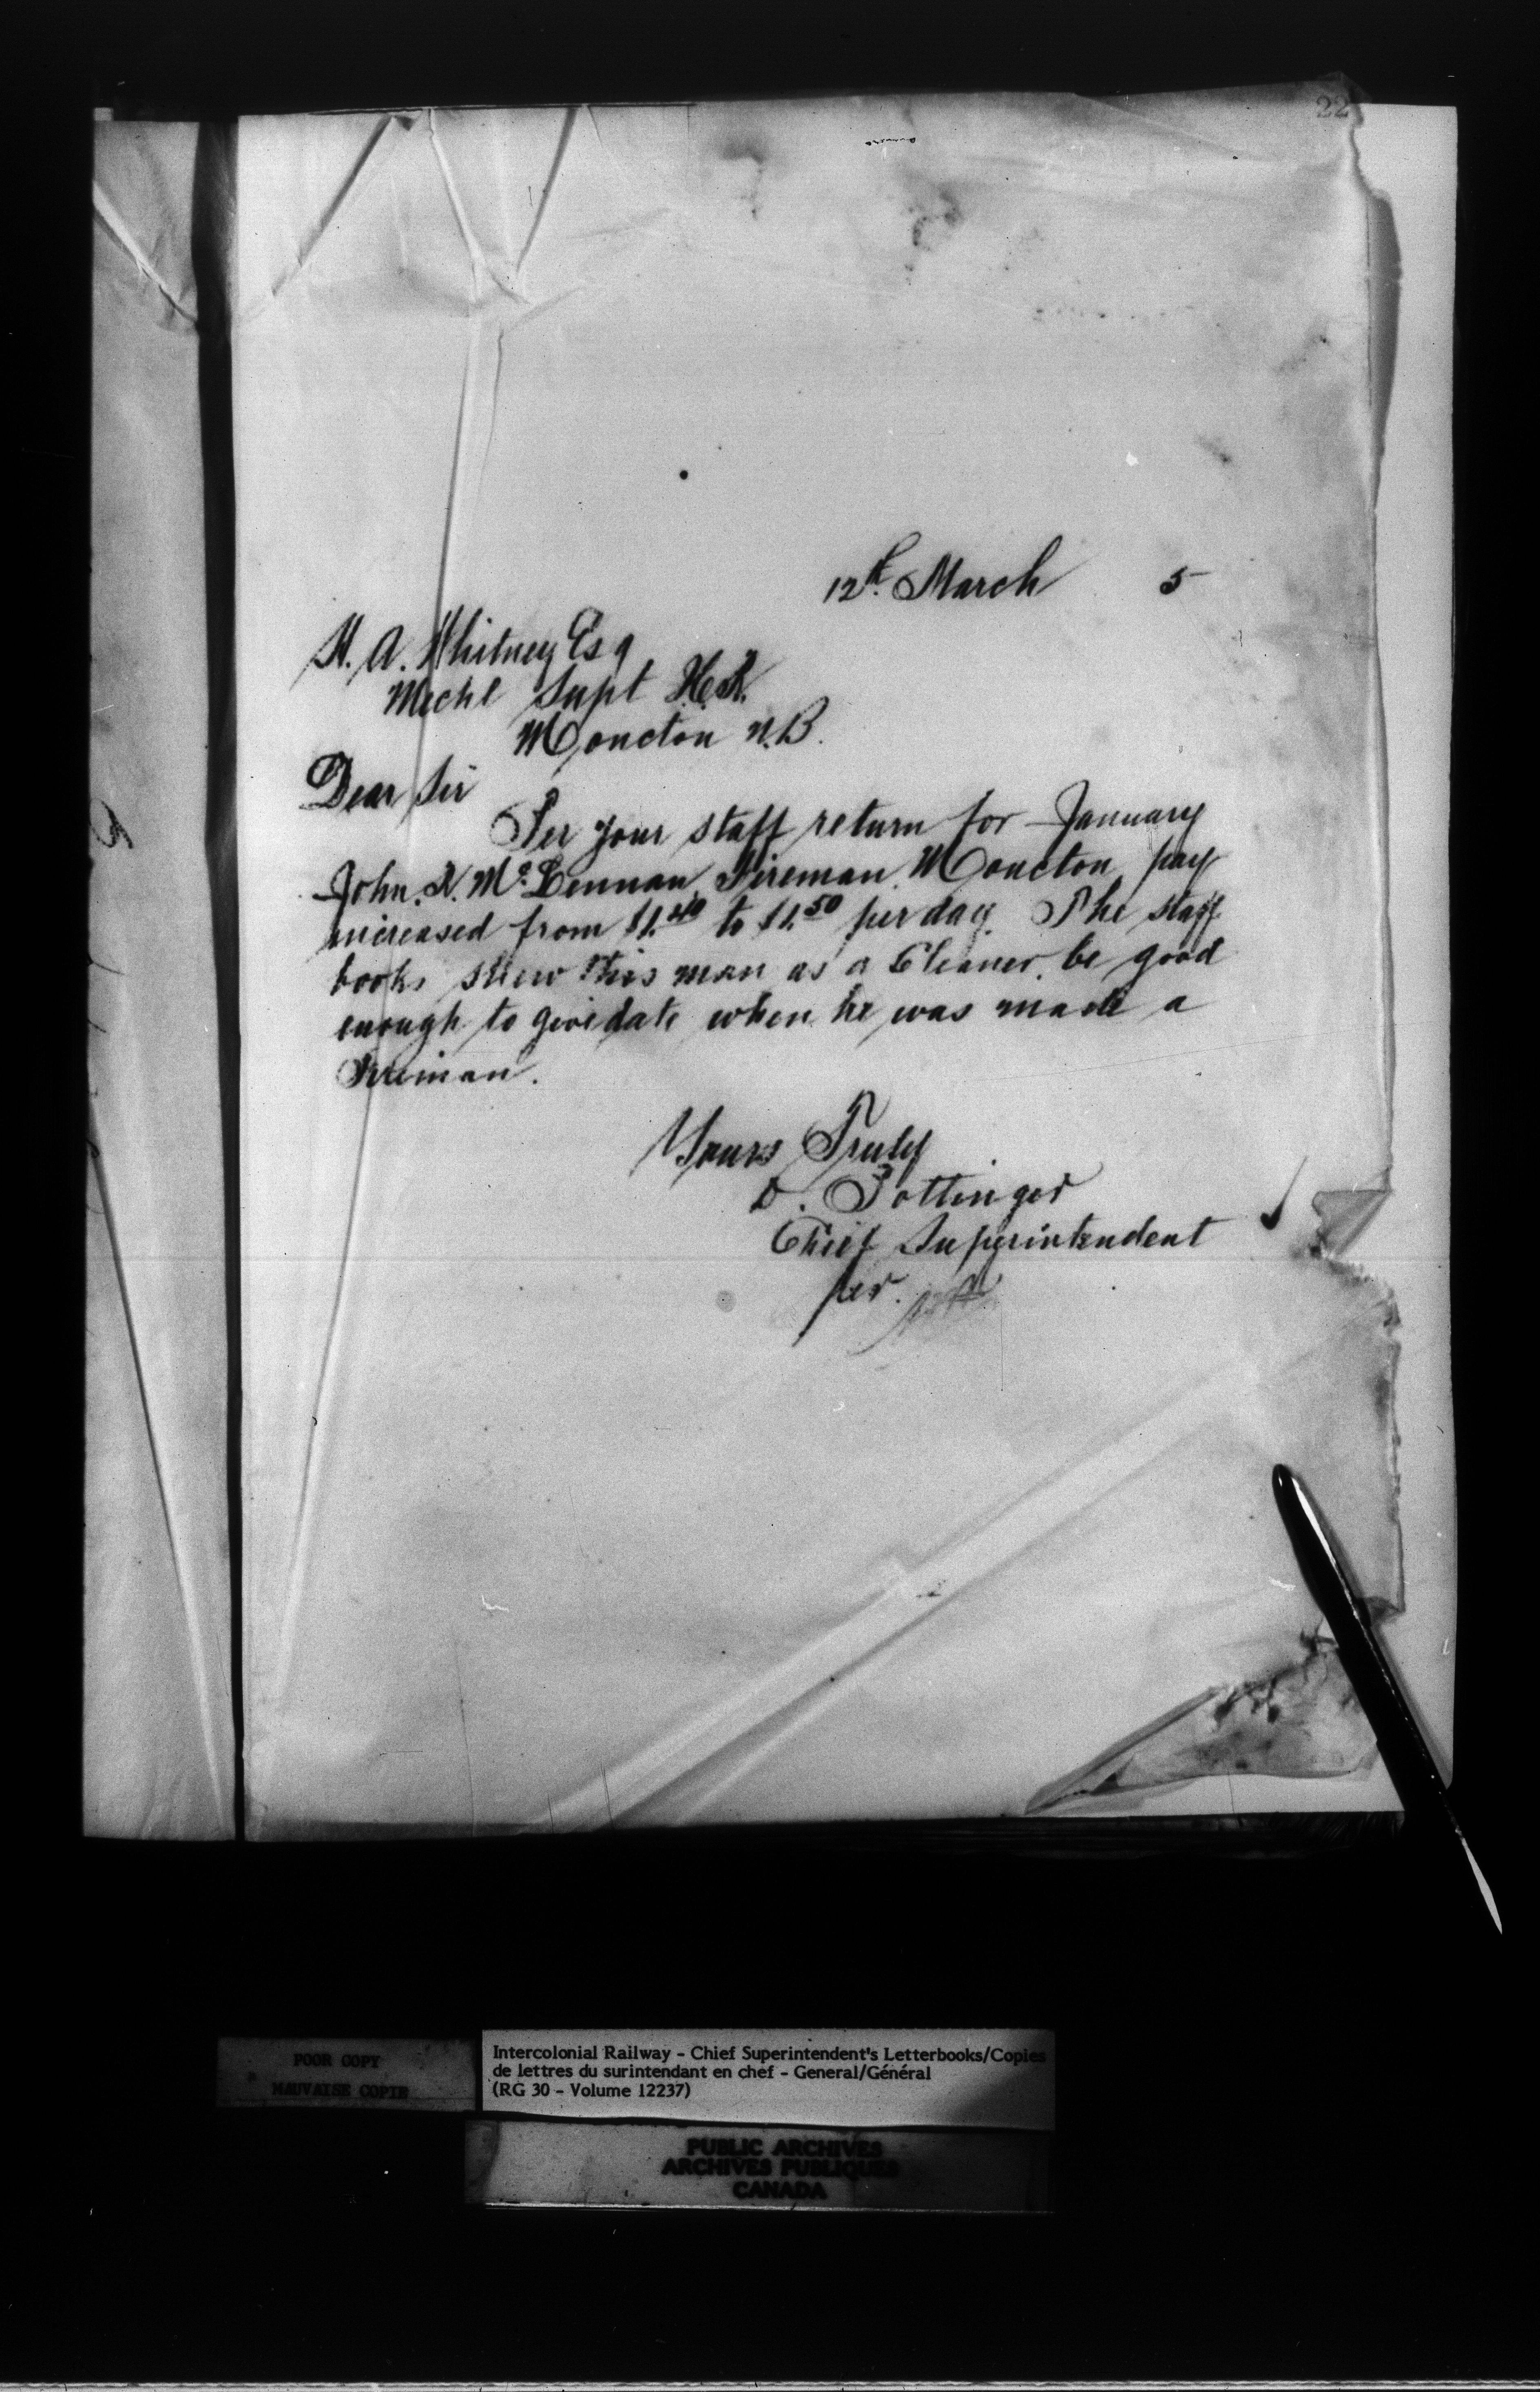 22
12th. March 5
H. A. Whitney Esq
Mechl Supt I.C.R.
Moncton N.B.
Dear Sir
Per your staff return for January
John. R. Mc Lennan, Fireman, Moncton, pay
increased from $1.40 to $1.50 per day. The staff
books shew this man as a Cleaner. be good
enough to give date when he was made a
Fireman.
Yours Truly
D. Pottinger
Chief Superintendent
per.
POOR COPY
MAUVAISE COPIE
Intercolonial Railway - Chief Superintendent's Letterbooks/Copies
de lettres du surintendant en chef - General/Général
(RG 30 - Volume 12237)
PUBLIC ARCHIVES
ARCHIVES PUBLIQUES
CANADA